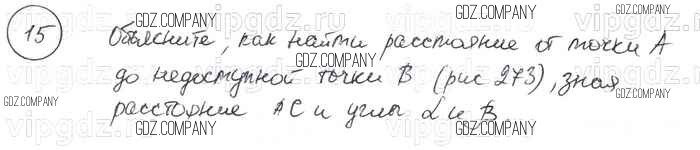 15 Объясните, как найти расстояние от точки A
до недоступной точки B (рис 273), зная
расстояние AC и углы α и β.
GDZ.COMPANY
GDZ.COMPANY
GDZ.COMPANY
GDZ.COMPANY
GDZ.COMPANY
GDZ.COMPANY
GDZ.COMPANY
GDZ.COMPANY
GDZ.COMPANY